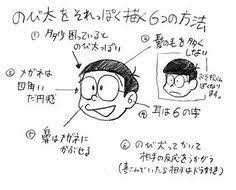 のび太をそれっぽく描く6つの方法
① 多少困っていると
のび太っぽい
② 髪の毛を多く
しない
③ メガネは
四角い
だ円形
④ 耳は6の字
⑤ 鼻はメガネに
かぶせる
⑥ のび太ってかいて
相手の反応をうかがう